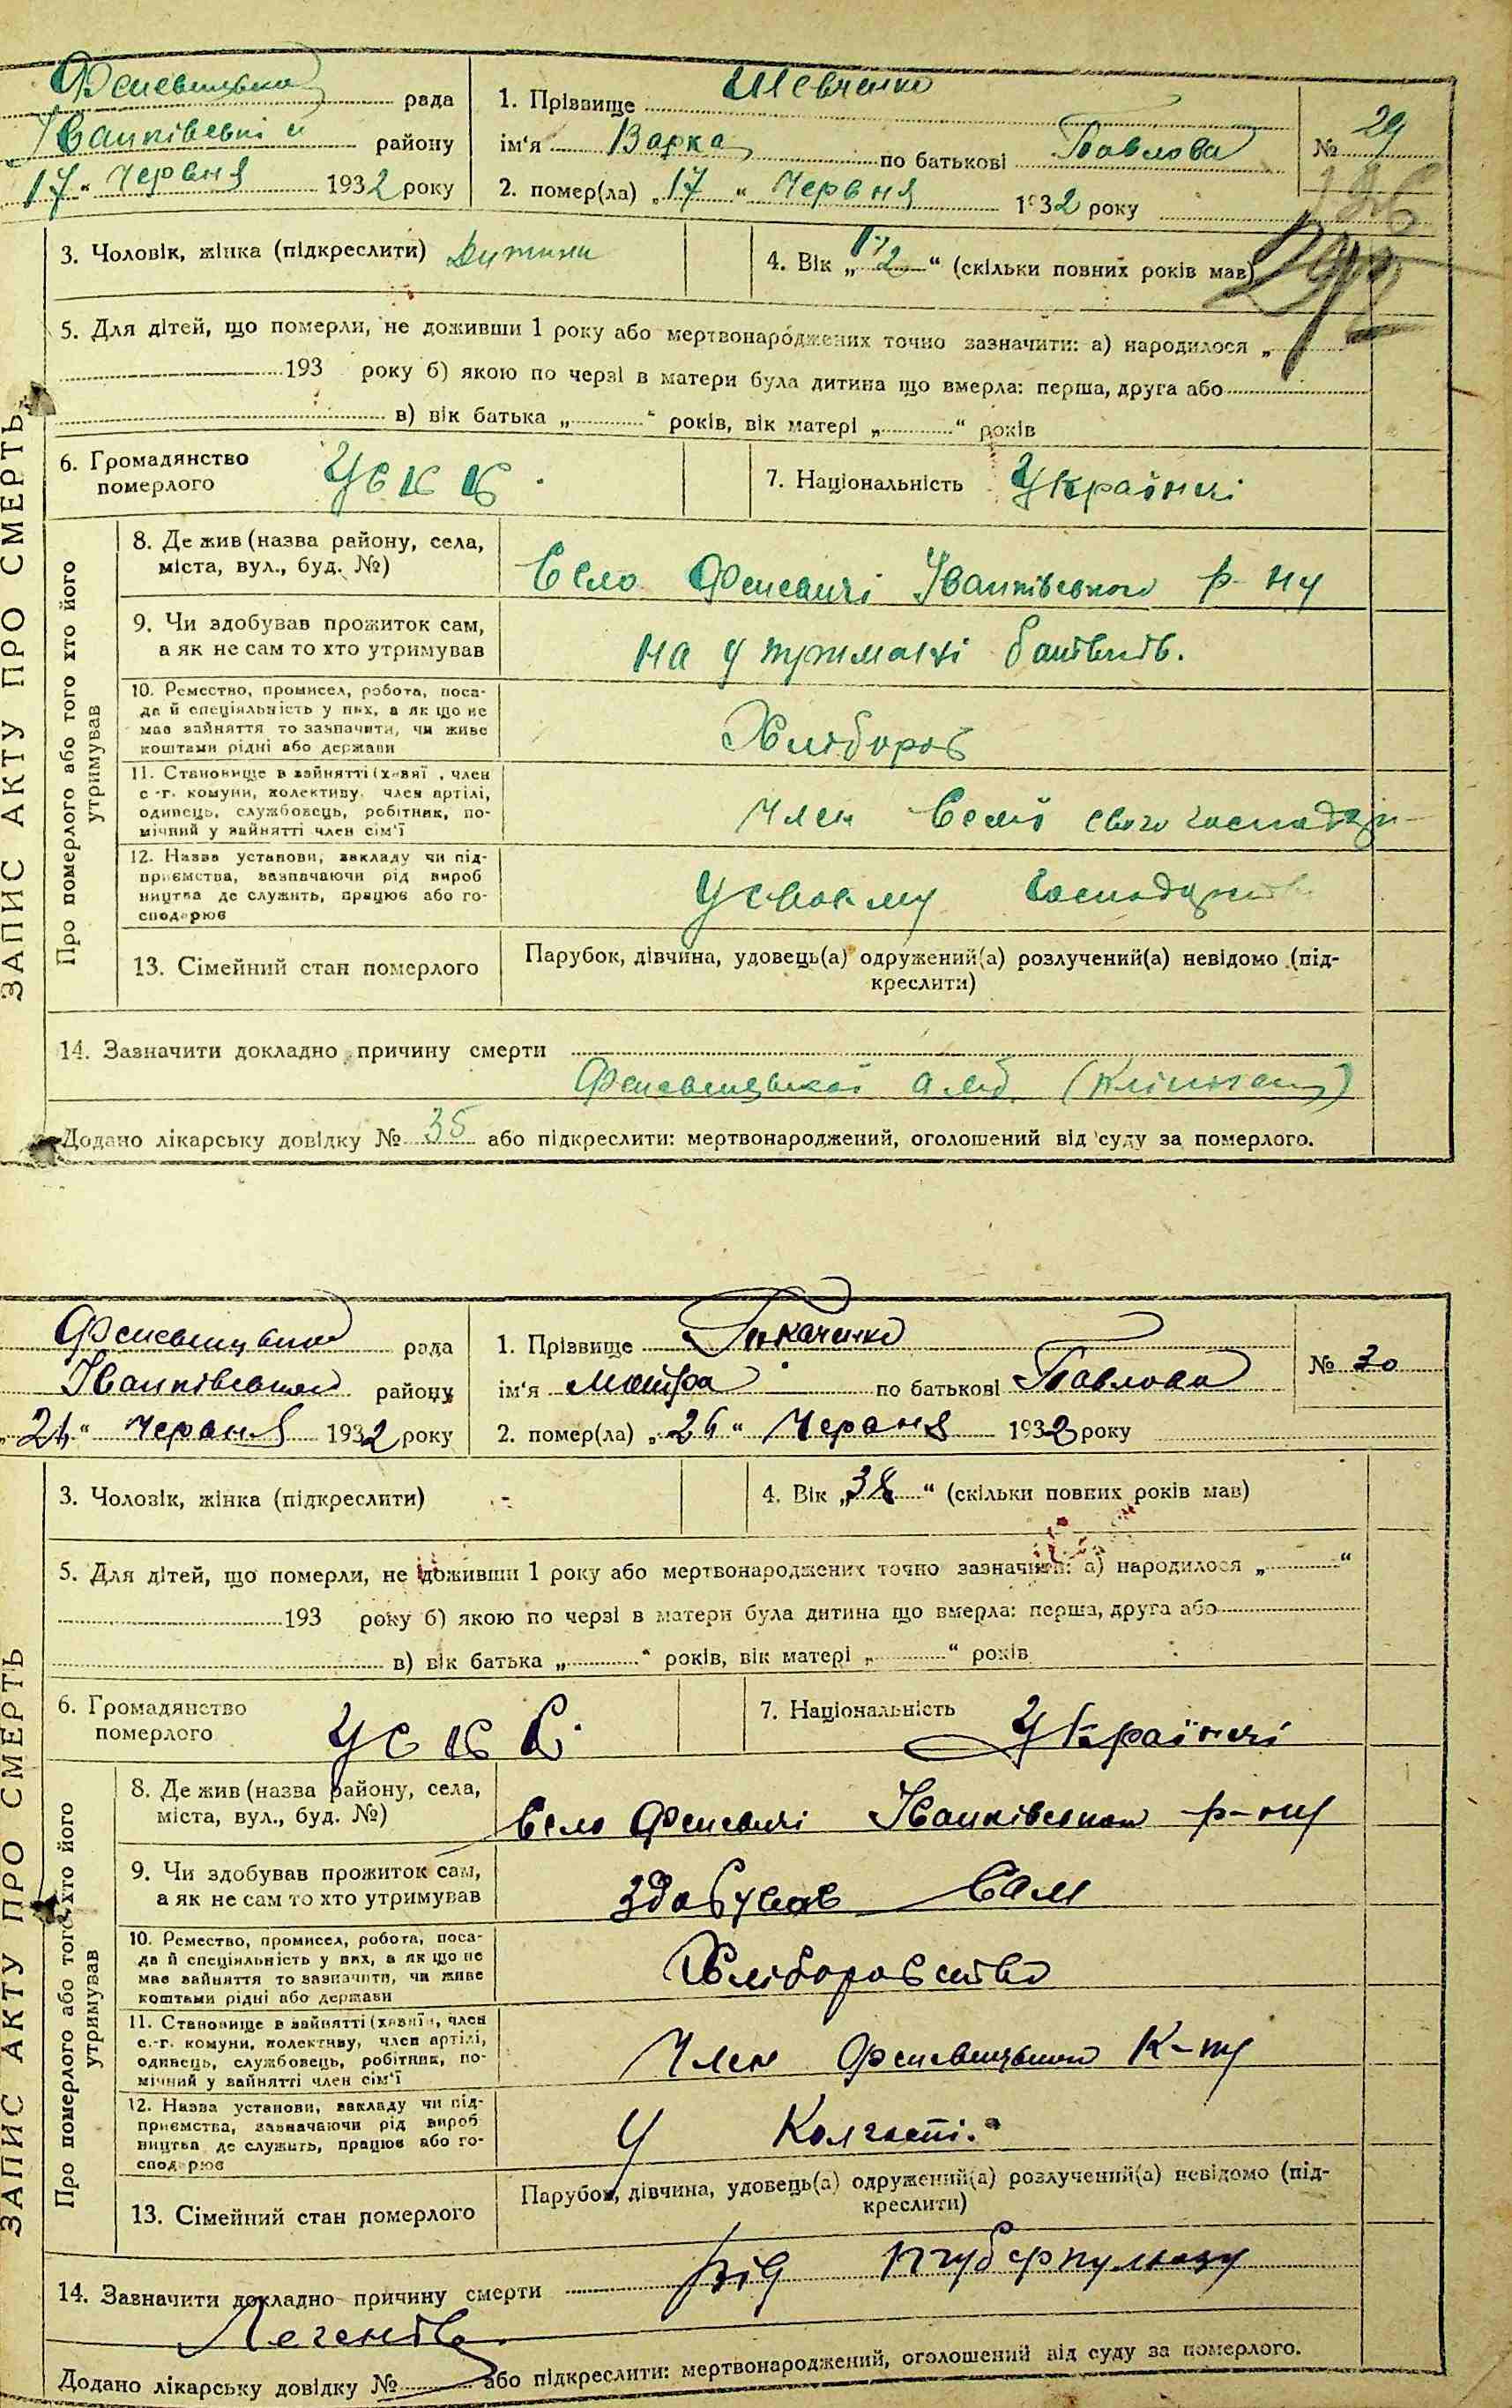 ЗАПИС АКТУ ПРО СМЕРТЬ
Феневицька рада
Іванківський району
17 " Червня 1932 року
1. Прізвище Шевченко
ім'я Варка по батькові Павлова
2. помер(ла) „ 17 " Червня 1932 року
№ 29
3. Чоловік, жінка (підкреслити) Дитина
4. Вік „ 1½ " (скільки повних років мав)
5. Для дітей, що померли, не доживши 1 року або мертвонароджених точно зазначити: а) народилося „
193 року б) якою по черзі в матери була дитина що вмерла: перша, друга або
в) вік батька „ " років, вік матері „ " років
6. Громадянство
померлого
УСРР
7. Національність
Про померлого або того хто його
утримував
8. Де жив (назва району, села,
міста, вул., буд. №)
Село Феневичі Іванківського р-ну
9. Чи здобував прожиток сам,
а як не сам то хто утримував
на утриманні батьків.
10. Ремество, промисел, робота, поса-
да й спеціяльність у них, а як що не
мав зайняття то зазначити, чи живе
коштами рідні або держави
Хлібороб
11. Становище в зайнятті (хазяї , член
с.-г. комуни, колективу, член артілі,
одинець, службовець, робітник, по-
мічний у зайнятті член сім'ї
Член Семї свого господар-
12. Назва установи, закладу чи під-
приємства, зазначаючи рід вироб
ництва де служить, працює або го-
сподарює
У своєму господарстві
13. Сімейний стан померлого
Парубок, дівчина, удовець(а) одружений(а) розлучений(а) невідомо (під-
креслити)
14. Зазначити докладно причину смерти
Додано лікарську довідку № 35 або підкреслити: мертвонароджений, оголошений від суду за померлого.
ЗАПИС АКТУ ПРО СМЕРТЬ
рада
району
Червня 1932 року
1. Прізвище Ткаченко
ім'я по батькові Павлова
2. помер(ла) „ 26 " Червня 1932 року
№ 30
3. Чоловік, жінка (підкреслити)
4. Вік „ 38 " (скільки повних років мав)
5. Для дітей, що померли, не доживши 1 року або мертвонароджених точно зазначити: а) народилося „ "
193 року б) якою по черзі в матери була дитина що вмерла: перша, друга або
в) вік батька „ " років, вік матері „ " років
6. Громадянство
померлого
7. Національність
Про померлого або того хто його
утримував
8. Де жив (назва району, села,
міста, вул., буд. №)
Село Феневичі Іванківського р-ну
9. Чи здобував прожиток сам,
а як не сам то хто утримував
здобував Сам
10. Ремество, промисел, робота, поса-
да й спеціяльність у них, а як що не
мав зайняття то зазначити, чи живе
коштами рідні або держави
Хліборобство
11. Становище в зайнятті (хазяїн, член
с.-г. комуни, колективу, член артілі,
одинець, службовець, робітник, по-
мічний у зайнятті член сім'ї
Член К-ну
12. Назва установи, закладу чи під-
приємства, зазначаючи рід вироб
ництва де служить, працює або го-
сподарює
У Колгоспі.
13. Сімейний стан померлого
Парубок, дівчина, удовець(а) одружений(а) розлучений(а) невідомо (під-
креслити)
14. Зазначити докладно причину смерти від туберкульозу
Легенів
Додано лікарську довідку № або підкреслити: мертвонароджений, оголошений від суду за померлого.